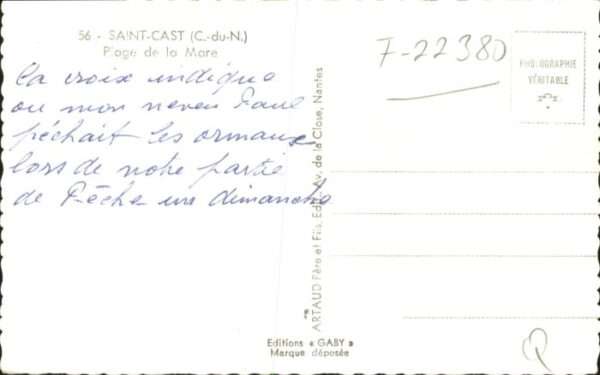 56 - SAINT-CAST (C.-du-N.)
Plage de la Mare
La croix indique
ou mon neveu Paul
pêchait les ormaux
lors de notre partie
de Pêche un dimanche
ARTAUD Père et Fils, Edit., Av. de la Close, Nantes
Editions « GABY »
Marque déposée
7-22380
PHOTOGRAPHIE
VÉRITABLE
Q